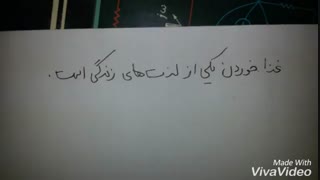 غذا خوردن یکی از لذت‌های زندگی است.
Made With
VivaVideo